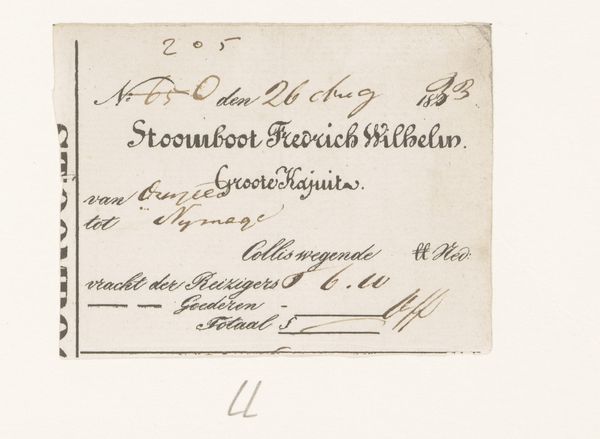 205
No. 650 den 26 Aug 1833
Stoomboot Fredrich Wilhelm.
Groote Kajuit.
van
tot Nymage
Collis wegende ℔ Ned:
vracht der Reizigers f 6.10
Goederen -
Totaal f